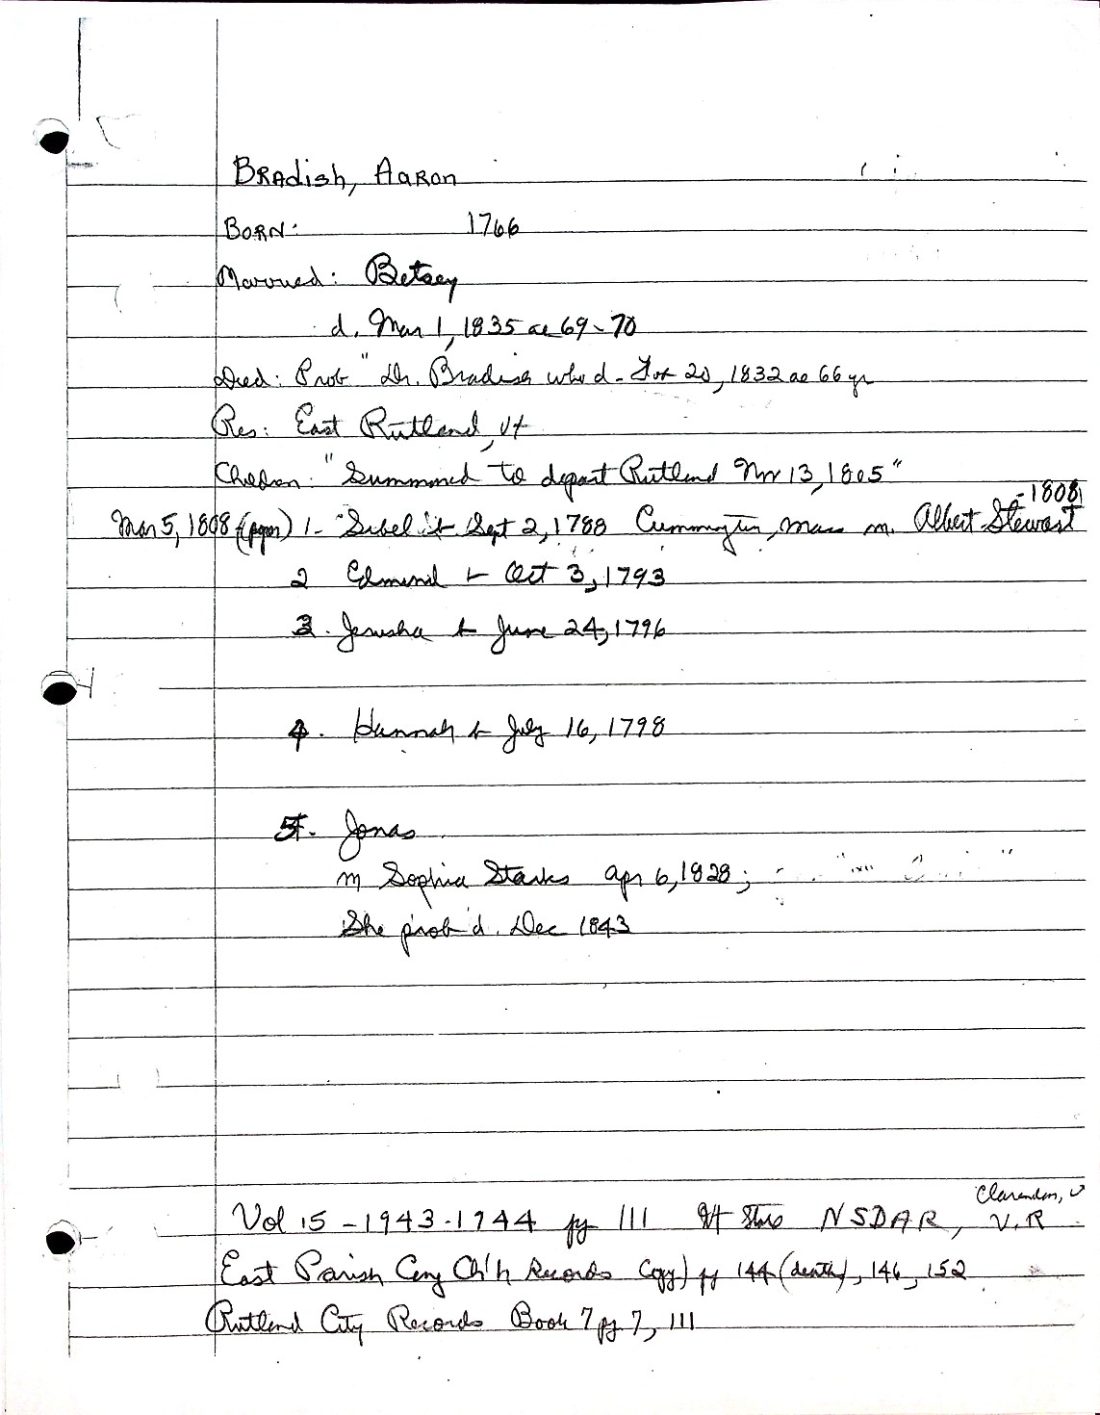 BRADISH, AARON
BORN: 1766
Married: Betsey
d. Mar 1, 1835 ae 69-70
Died: Prob "Dr. Bradish who d. 20, 1832 ae 66 yr
Res: East Rutland, Vt
Children: "Summoned to depart Rutland Nov 13, 1805"
-1808
Mar 5, 1808 1- Sibel b Sept 2, 1788 Cummington, Mass m. Albert Stewart
2 Edmund b Oct 3, 1793
3. Jerusha b June 24, 1796
4. Hannah b July 16, 1798
5. Jonas
m Sophia Starks Apr 6, 1828;
She prob d. Dec 1843
Clarendon, V
Vol 15 - 1943-1944 pg 111 Vt State NSDAR, V.R
East Parish Cong Ch'h Records Copy) pg 144 (death), 146, 152
Rutland City Records Book 7 pg 7, 111